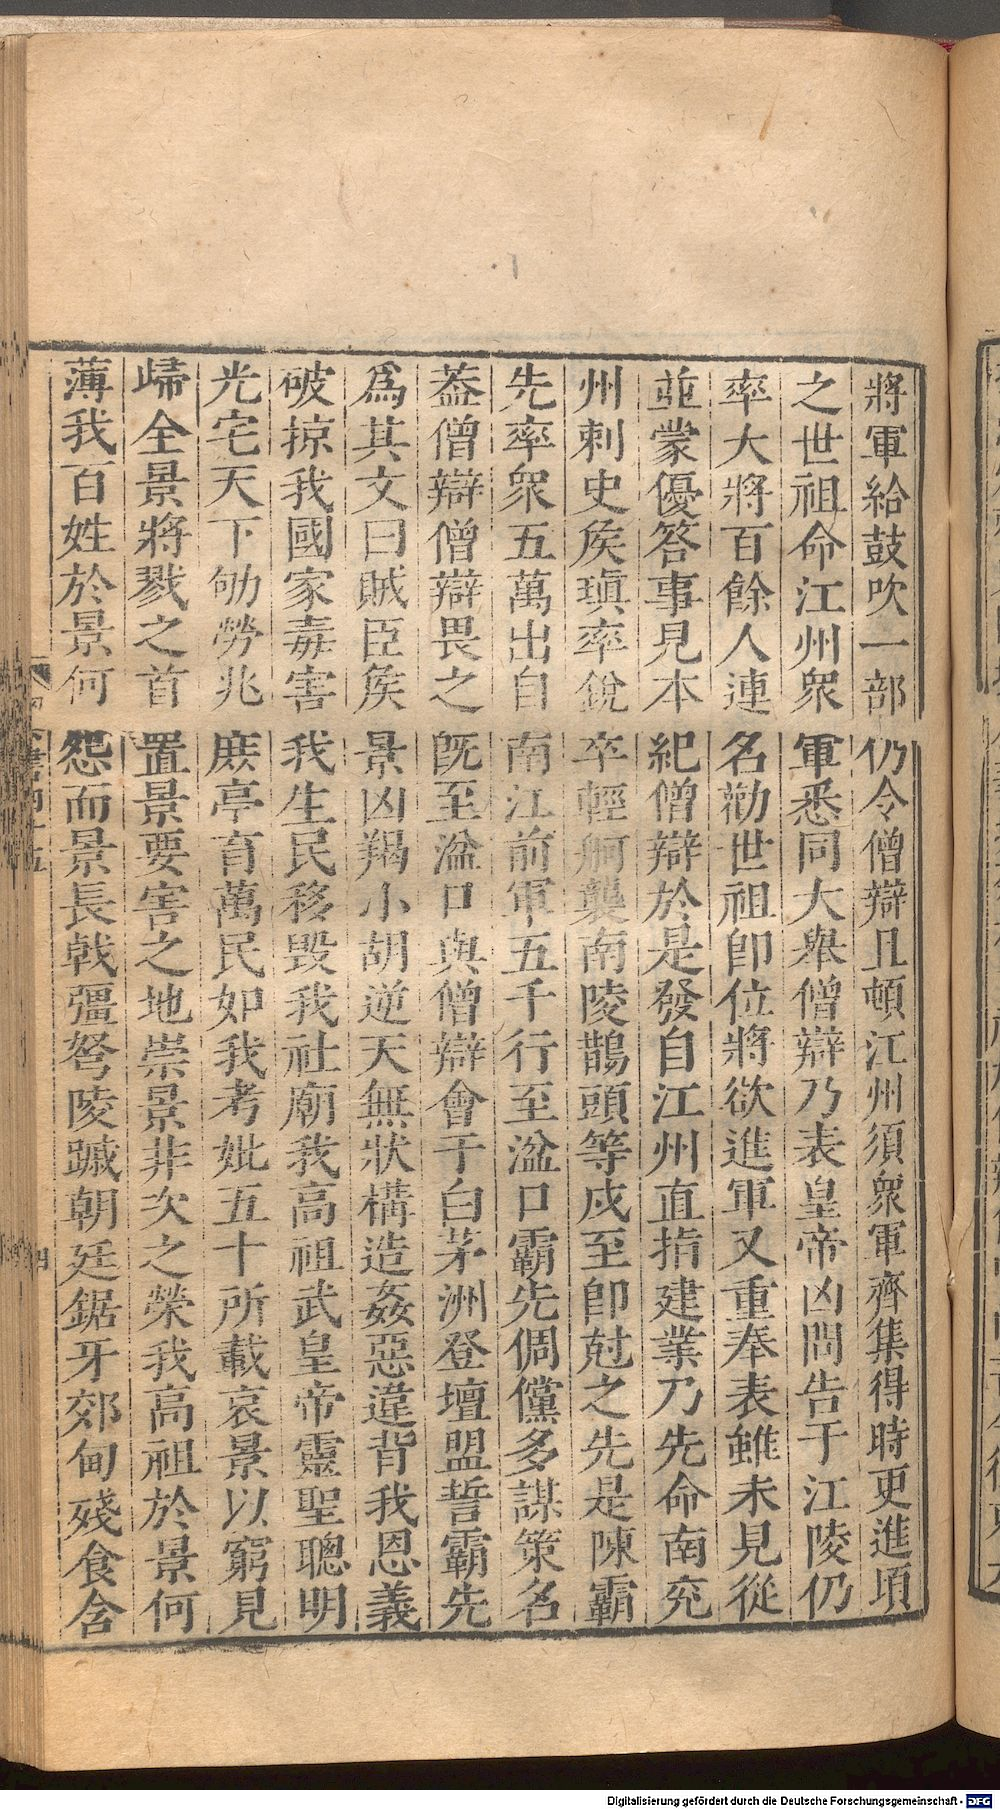 將軍給鼓吹一部仍令僧辯且頓江州須衆軍齊集得時更進項
之世祖命江州衆軍悉同大舉僧辯乃表皇帝凶問告于江陵仍
率大將百餘人連名勸世祖卽位將欲進軍又重奉表雖未見從
並蒙優答事見本紀僧辯於是發自江州直指建業乃先命南兖
州刺史矦瑱率銳卒輕舸襲南陵鵲頭等戍至卽尅之先是陳霸
先率衆五萬出自南江前軍五千行至湓口霸先倜儻多謀策名
葢僧辯僧辯畏之旣至湓口與僧辯會于白茅洲登壇盟誓霸先
爲其文曰賊臣矦景凶羯小胡逆天無狀構造姦惡違背我恩義
破掠我國家毒害我生民移毀我社廟我高祖武皇帝靈聖聰明
光宅天下劬勞兆庻亭育萬民如我考妣五十所載哀景以窮見
歸全景將戮之首置景要害之地崇景非次之榮我高祖於景何
薄我百姓於景何怨而景長戟彊弩陵蹴朝廷鋸牙郊甸殘食含
Digitalisierung gefördert durch die Deutsche Forschungsgemeinschaft - DFG